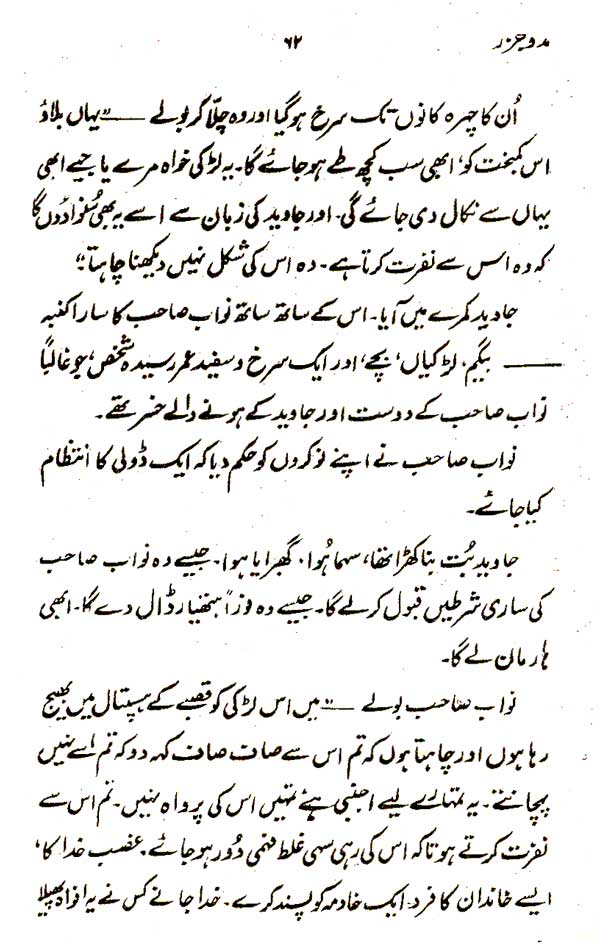 مدوجزر ۶۲
اُن کا چہرہ کانوں تک سرخ ہوگیا اور وہ چلّا کر بولے — ”یہاں بلاؤ
اس کمبخت کو، ابھی سب کچھ طے ہوجائے گا۔ یہ لڑکی خواہ مرے یا جیے ابھی
یہاں سے نکال دی جائے گی۔ اور جاوید کی زبان سے اسے یہ بھی سُنوا دُوں گا
کہ وہ اس سے نفرت کرتا ہے۔ وہ اس کی شکل نہیں دیکھنا چاہتا۔“
جاوید کمرے میں آیا۔ اس کے ساتھ ساتھ نواب صاحب کا سارا کنبہ
— بیگم، لڑکیاں، بچے، اور ایک سرخ و سفید عمر رسیدہ شخص، جو غالباً
نواب صاحب کے دوست اور جاوید کے ہونے والے خسر تھے۔
نواب صاحب نے اپنے نوکروں کو حکم دیا کہ ایک ڈولی کا انتظام
کیا جائے۔
جاوید بُت بنا کھڑا تھا، سہما ہُوا، گھبرایا ہوا۔ جیسے وہ نواب صاحب
کی ساری شرطیں قبول کرلے گا۔ جیسے وہ فوراً ہتھیار ڈال دے گا۔ ابھی
ہار مان لے گا۔
نواب صاحب بولے — ”میں اس لڑکی کو قصبے کے ہسپتال میں بھیج
رہا ہوں اور چاہتا ہوں کہ تم اس سے صاف صاف کہہ دو کہ تم اسے نہیں
پہچانتے۔ یہ تمہارے لیے اجنبی ہے، تمہیں اس کی پرواہ نہیں۔ تم اس سے
نفرت کرتے ہو تاکہ اس کی رہی سہی غلط فہمی دُور ہوجائے۔ غضب خدا کا،
ایسے خاندان کا فرد، ایک خادمہ کو پسند کرے۔ خدا جانے کس نے یہ افواہ پھیلا